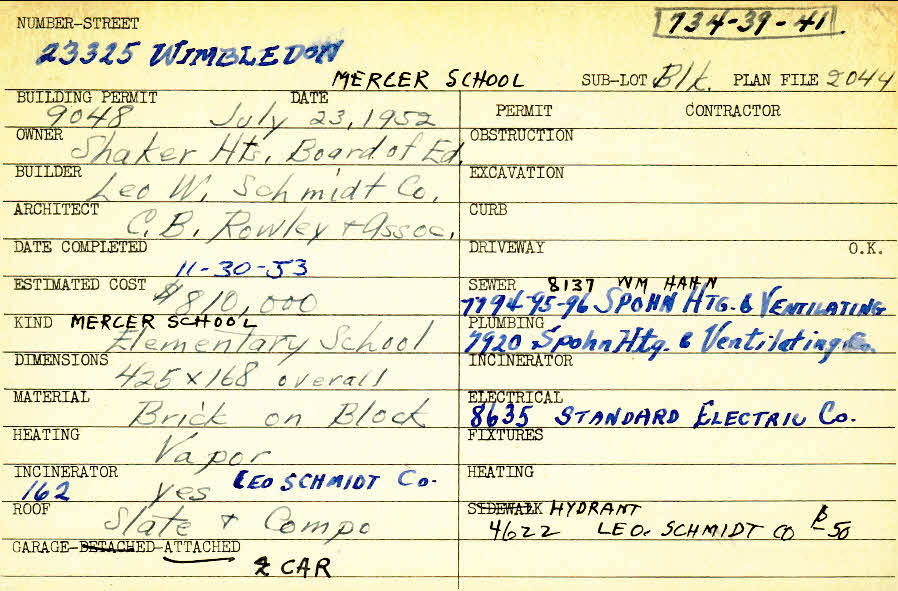 NUMBER-STREET 734-39-41
23325 WIMBLEDON
MERCER SCHOOL SUB-LOT Blk. PLAN FILE 2044
BUILDING PERMIT DATE
9048 July 23, 1952
OWNER
Shaker Hts. Board of Ed.
BUILDER
Leo W. Schmidt Co.
ARCHITECT
C. B. Rowley + Assoc.
DATE COMPLETED
11-30-53
ESTIMATED COST
$810,000
KIND MERCER SCHOOL
Elementary School
DIMENSIONS
425 x 168 overall
MATERIAL
Brick on Block
HEATING
Vapor
INCINERATOR
162 yes LEO SCHMIDT Co.
ROOF
Slate + Compo
GARAGE-DETACHED-ATTACHED
2 CAR
PERMIT CONTRACTOR
OBSTRUCTION
EXCAVATION
CURB
DRIVEWAY O.K.
SEWER 8137 WM HAHN
7794-95-96 SPOHN HTG. & VENTILATING
PLUMBING
7920 Spohn Htg. & Ventilating Co.
INCINERATOR
ELECTRICAL
8635 STANDARD ELECTRIC Co.
FIXTURES
HEATING
SIDEWALK HYDRANT
4622 LEO. SCHMIDT CO 50